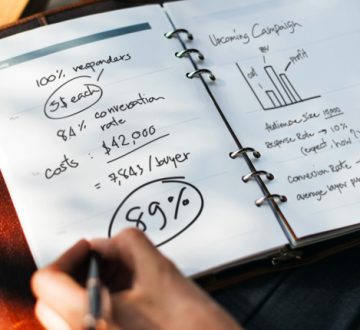 100% responders
5$ each
84% conversation
rate
costs : $42,000
= 7,843/buyer
89%
Upcoming Campaign
cost
profit
Audience Size 15,000
Response Rate → 10%
(expect, how
Conversion Rate
average buyer